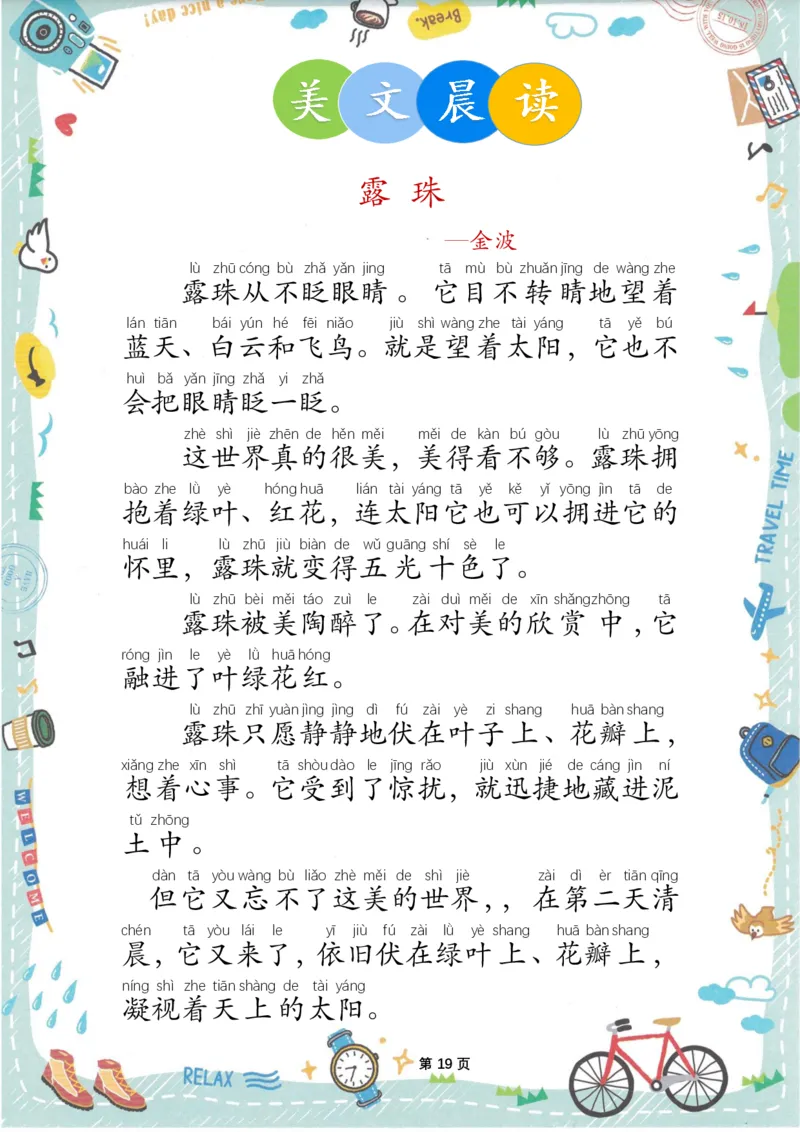 Break.
美文晨读
露 珠
—金波
lù zhū cóng bù zhǎ yǎn jing tā mù bù zhuǎn jīng de wàng zhe
露珠从不眨眼睛。它目不转睛地望着
lán tiān bái yún hé fēi niǎo jiù shì wàng zhe tài yáng tā yě bú
蓝天、白云和飞鸟。就是望着太阳，它也不
huì bǎ yǎn jīng zhǎ yi zhǎ
会把眼睛眨一眨。
zhè shì jiè zhēn de hěn měi měi de kàn bú gòu lù zhū yōng
这世界真的很美，美得看不够。露珠拥
bào zhe lǜ yè hóng huā lián tài yáng tā yě kě yǐ yōng jìn tā de
抱着绿叶、红花，连太阳它也可以拥进它的
huái li lù zhū jiù biàn de wǔ guāng shí sè le
怀里，露珠就变得五光十色了。
lù zhū bèi měi táo zuì le zài duì měi de xīn shǎng zhōng tā
露珠被美陶醉了。在对美的欣赏中，它
róng jìn le yè lǜ huā hóng
融进了叶绿花红。
lù zhū zhī yuàn jìng jìng dì fú zài yè zi shang huā bàn shang
露珠只愿静静地伏在叶子上、花瓣上，
xiǎng zhe xīn shì tā shòu dào le jīng rǎo jiù xùn jié de cáng jìn ní
想着心事。它受到了惊扰，就迅捷地藏进泥
tǔ zhōng
土中。
dàn tā yòu wàng bù liǎo zhè měi de shì jiè zài dì èr tiān qīng
但它又忘不了这美的世界，，在第二天清
chén tā yòu lái le yī jiù fú zài lǜ yè shang huā bàn shang
晨，它又来了，依旧伏在绿叶上、花瓣上，
níng shì zhe tiān shàng de tài yáng
凝视着天上的太阳。
TRAVEL TIME
WELCOME
第 19 页
RELAX